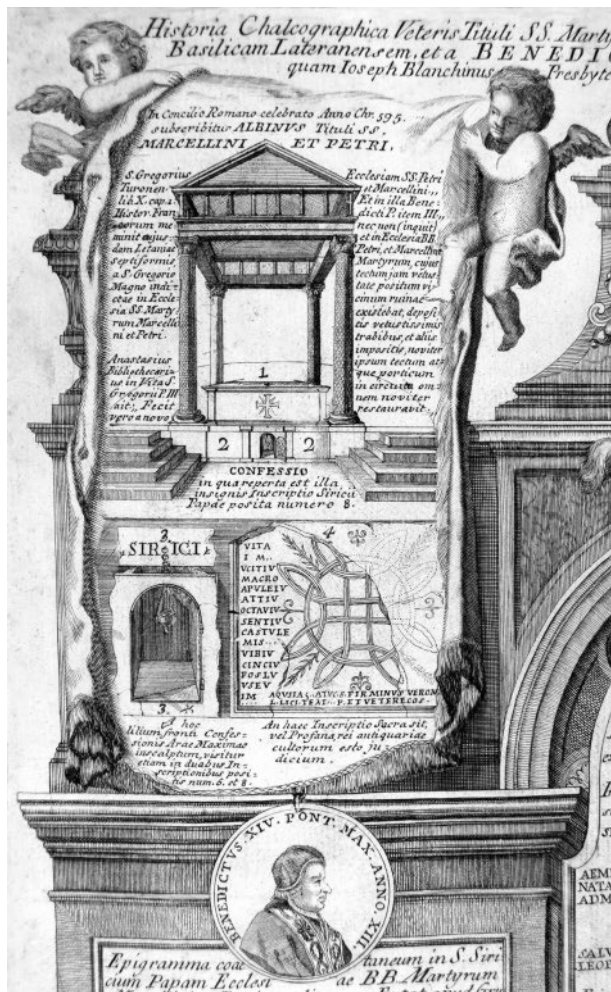 Historia Chalcographica Veteris Tituli SS. Marty
Basilicam Lateranensem, et a BENEDIC
quam Ioseph Blanchinus Presbyte
In Concilio Romano celebrato Anno Chr. 595.
subscribitur ALBINVS Tituli SS.
MARCELLINI ET PETRI.
S. Gregorius
Turonen=
lib. X. cap. 1.
Histor. Fran
corum me=
minit ejus=
dem Letaniae
septiformis
a S. Gregorio
Magno indi=
ctae in Eccle=
sia SS. Marty
rum Marcelli
ni et Petri.
Anastasius
Bibliothecari=
us in Vita S.
Gregorii P. III
ait, Fecit
vero a novo
Ecclesiam SS. Petri
et Marcellini
Et in illa Bene=
dicti P. item III.
nec non (inquit)
et in Ecclesia BB.
Petri, et Marcellini
Martyrum, cujus
tectum jam vetus=
tate positum vi=
cinum ruinae
existebat, deposi=
tis vetustissimis
trabibus, et aliis
impositis, noviter
ipsum tectum at=
que porticum
in circuitu om=
nem noviter
restauravit.
1
2 2
CONFESSIO
in qua reperta est illa
insignis Inscriptio Siricii
Papae posita numero 8.
3.
SIRICI
3.
4
VITA
I M
VCITIV
MACRO
APVLEIV
ATTIV
OCTAVIV
SENTIV
CASTVLE
MIS
VIBIV
CINCIV
VOSLV
VSEV
IM
FIRMINVS VERON
P. ET VETERECOS
hoc
lilium fronti Confes=
sionis Arae Maximae
insculptum, visitur
etiam in duabus In=
scriptionibus posi=
tis num. 6. et 8.
An haec Inscriptio Sacra sit,
vel Profana, rei antiquariae
cultorum esto ju=
dicium.
BENEDICTVS XIV. PONT. MAX. ANNO XIII.
Epigramma coae taneum in S. Siri
cium Papam Ecclesi ae BB. Martyrum
AEMI
NATA
ADM
SALV
LEOP